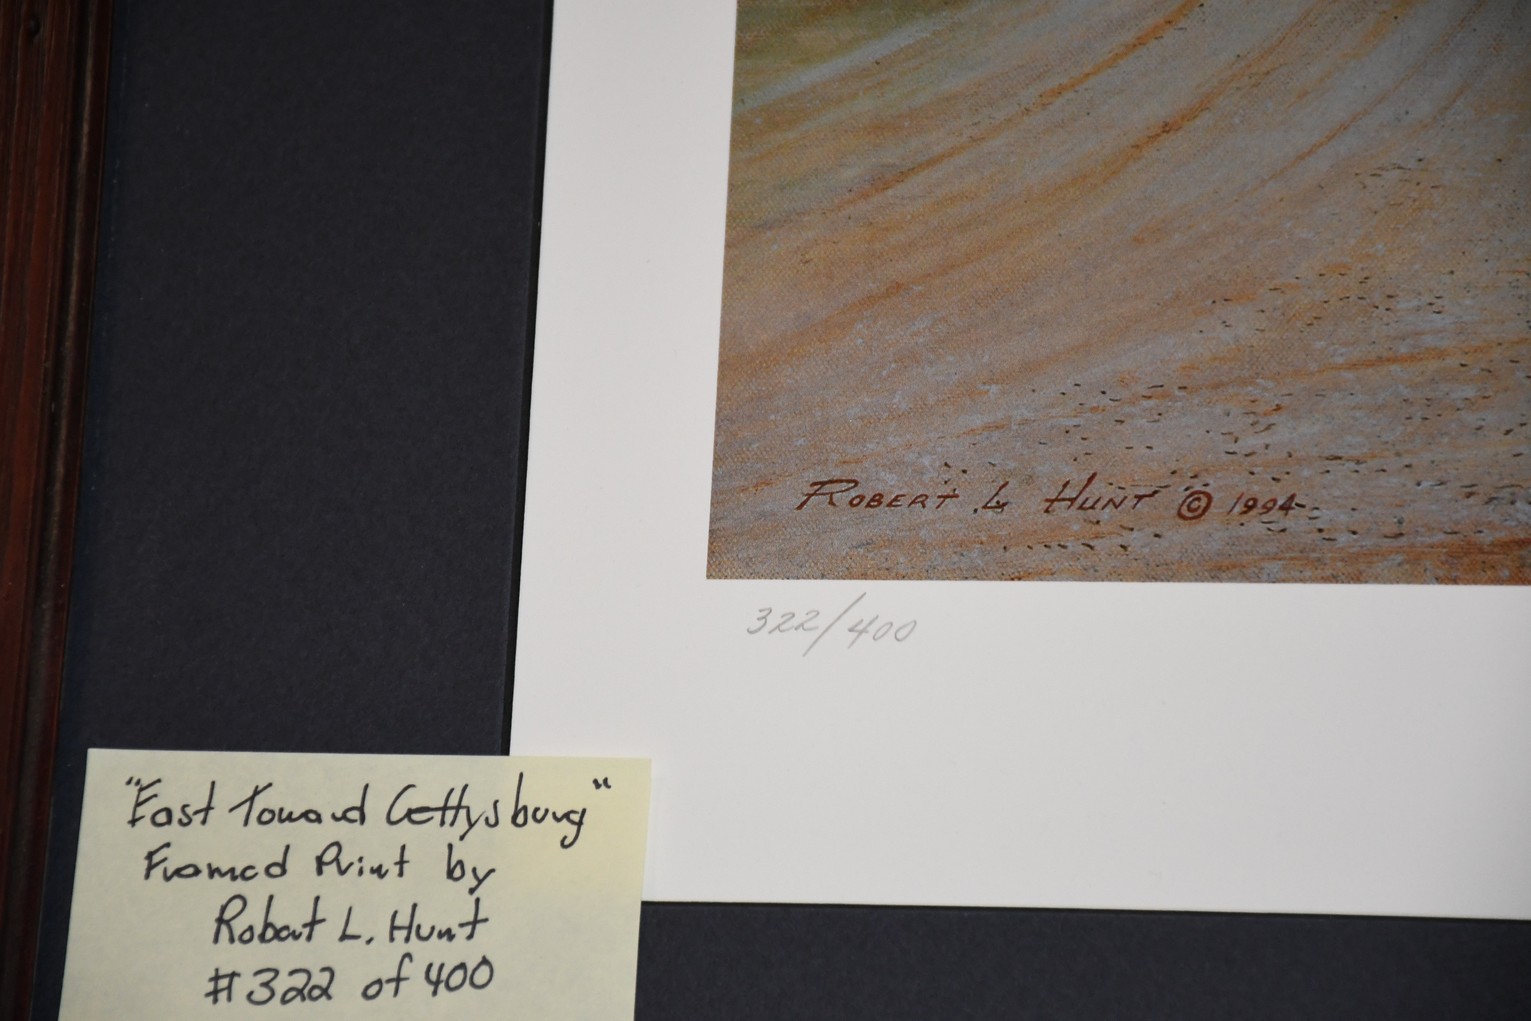 ROBERT L HUNT © 1994
322/400
"East Toward Gettysburg"
Framed Print by
Robert L. Hunt
#322 of 400